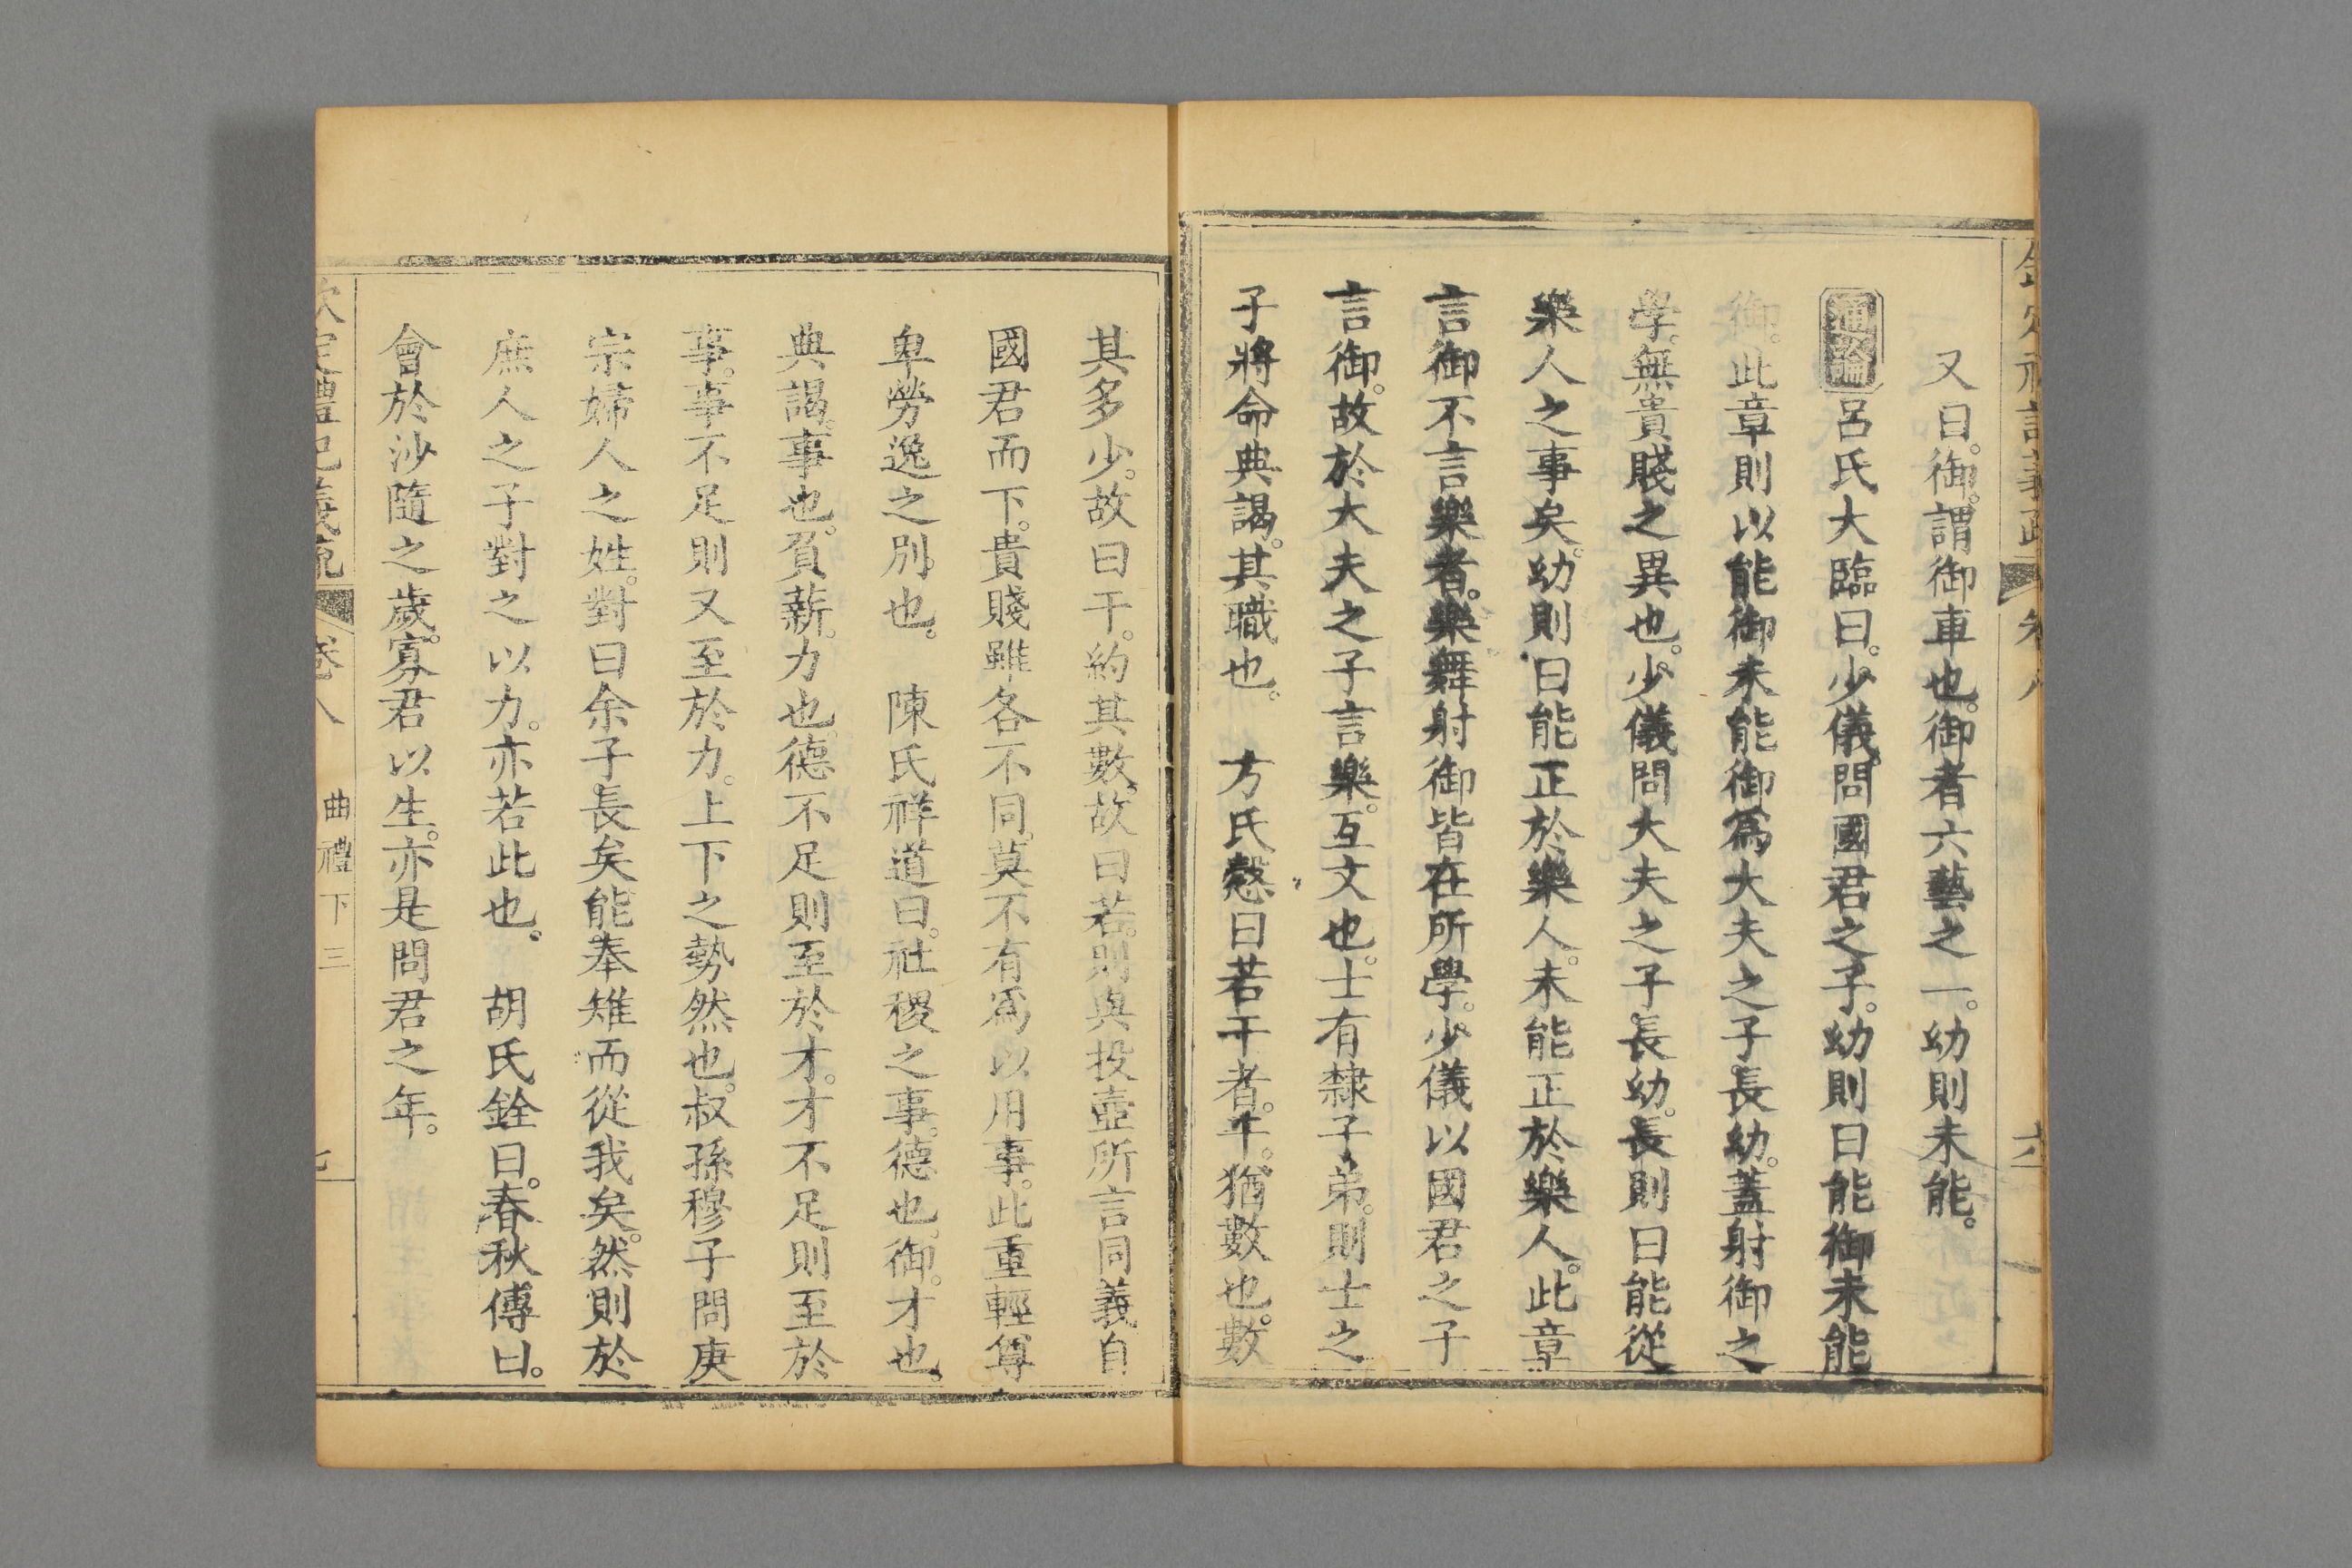 又曰。御。謂御車也。御者六藝之一。幼則未能。
通論 呂氏大臨曰。少儀。問國君之子。幼則曰能御未能
御。此章則以能御未能御爲大夫之子。長幼。蓋射御之
學。無貴賤之異也。少儀問大夫之子。長幼。長則曰能從
樂人之事矣。幼則曰能正於樂人。未能正於樂人。此章
言御不言樂者。樂舞射御皆在所學。少儀以國君之子
言御。故於大夫之子言樂。互文也。士有隸子弟。則士之
子將命典謁。其職也。 方氏慤曰若干者。干。猶數也。數
其多少。故曰干。約其數。故曰若。則與投壺所言同義自
國君而下。貴賤雖各不同。莫不有爲以用事。此重輕尊
卑勞逸之別也。 陳氏祥道曰。社稷之事。德也。御。才也。
典謁。事也。負薪。力也。德不足則至於才。才不足則至於
事。事不足則又至於力。上下之勢然也。叔孫穆子問庚
宗婦人之姓。對曰余子長矣。能奉雉而從我矣。然則於
庶人之子對之以力。亦若此也。 胡氏銓曰。春秋傳曰。
會於沙隨之歲。寡君以生。亦是問君之年。
欽定禮記義疏 卷八 曲禮下三 七